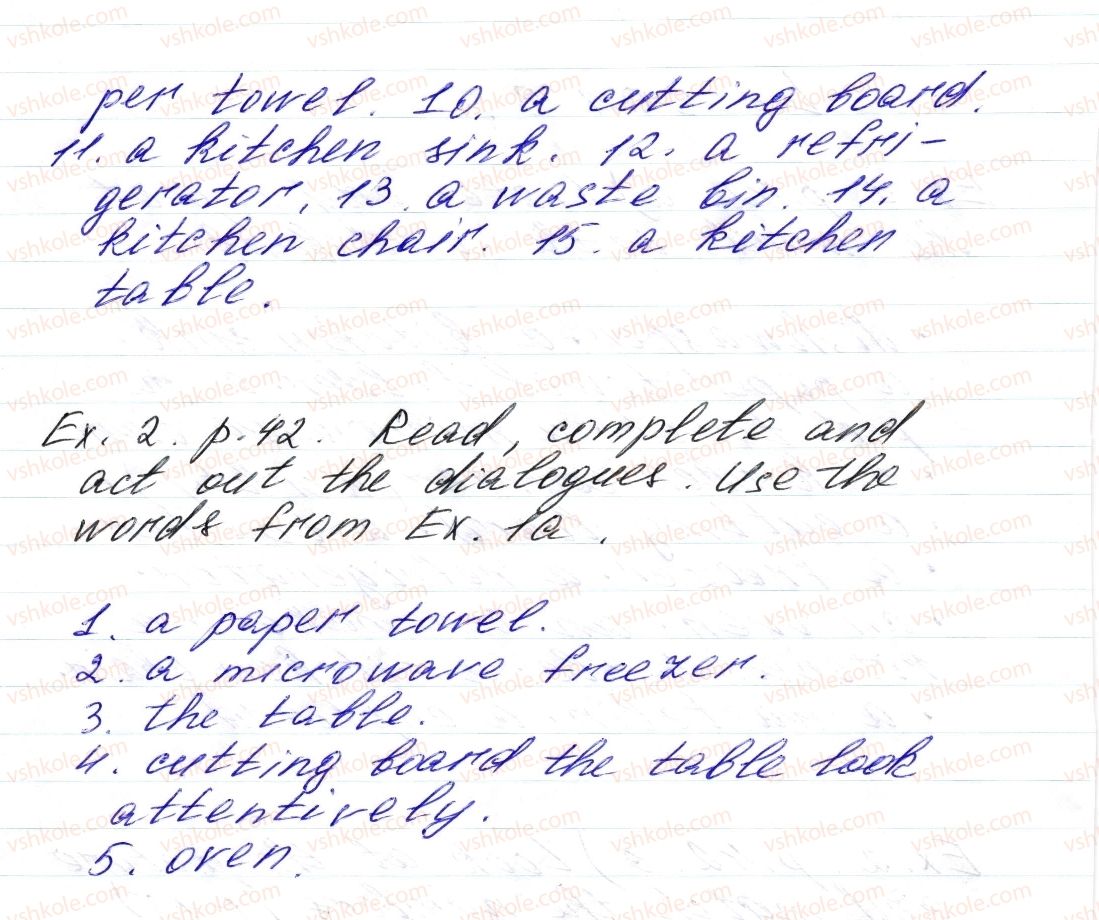 per towel. 10. a cutting board.
11. a kitchen sink. 12. a refri-
gerator, 13. a waste bin. 14. a
kitchen chair. 15. a kitchen
table.
Ex. 2. p. 42. Read, complete and
act out the dialogues. Use the
words from Ex. 1a.
1. a paper towel.
2. a microwave freezer.
3. the table.
4. cutting board the table look
attentively.
5. oven.